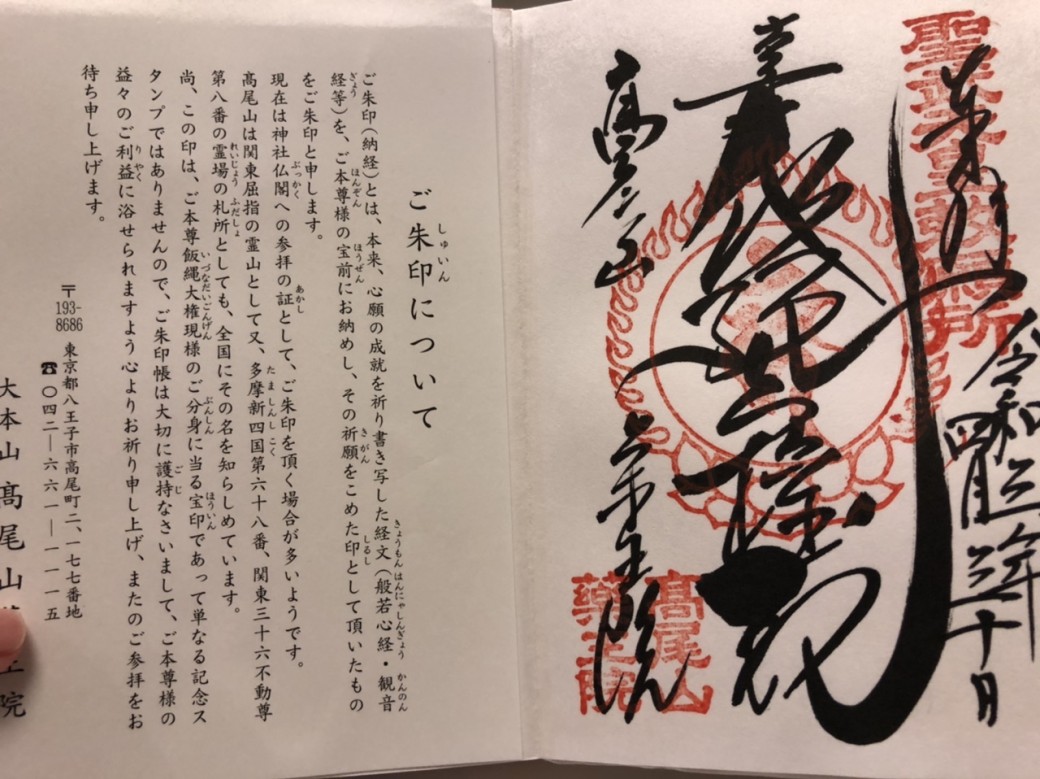 奉拝
令和三年
四月三十日
飯縄大権現
高尾山
薬王院
聖武天皇勅願所
高尾山
薬王院
ご朱印について
ご朱印(納経)とは、本来、心願の成就を祈り書き写した経文(般若心経・観音
経等)を、ご本尊様の宝前にお納めし、その祈願をこめた印として頂いたもの
をご朱印と申します。
現在は神社仏閣への参拝の証として、ご朱印を頂く場合が多いようです。
髙尾山は関東屈指の霊山として又、多摩新四国第六十八番、関東三十六不動尊
第八番の霊場の札所としても、全国にその名を知らしめています。
尚、この印は、ご本尊飯縄大権現様のご分身に当る宝印であって単なる記念ス
タンプではありませんので、ご朱印帳は大切に護持なさいまして、ご本尊様の
益々のご利益に浴せられますよう心よりお祈り申し上げ、またのご参拝をお
待ち申し上げます。
〒193-8686 東京都八王子市高尾町二、一七七番地
☎〇四二―六六一―一一一五
大本山髙尾山
院